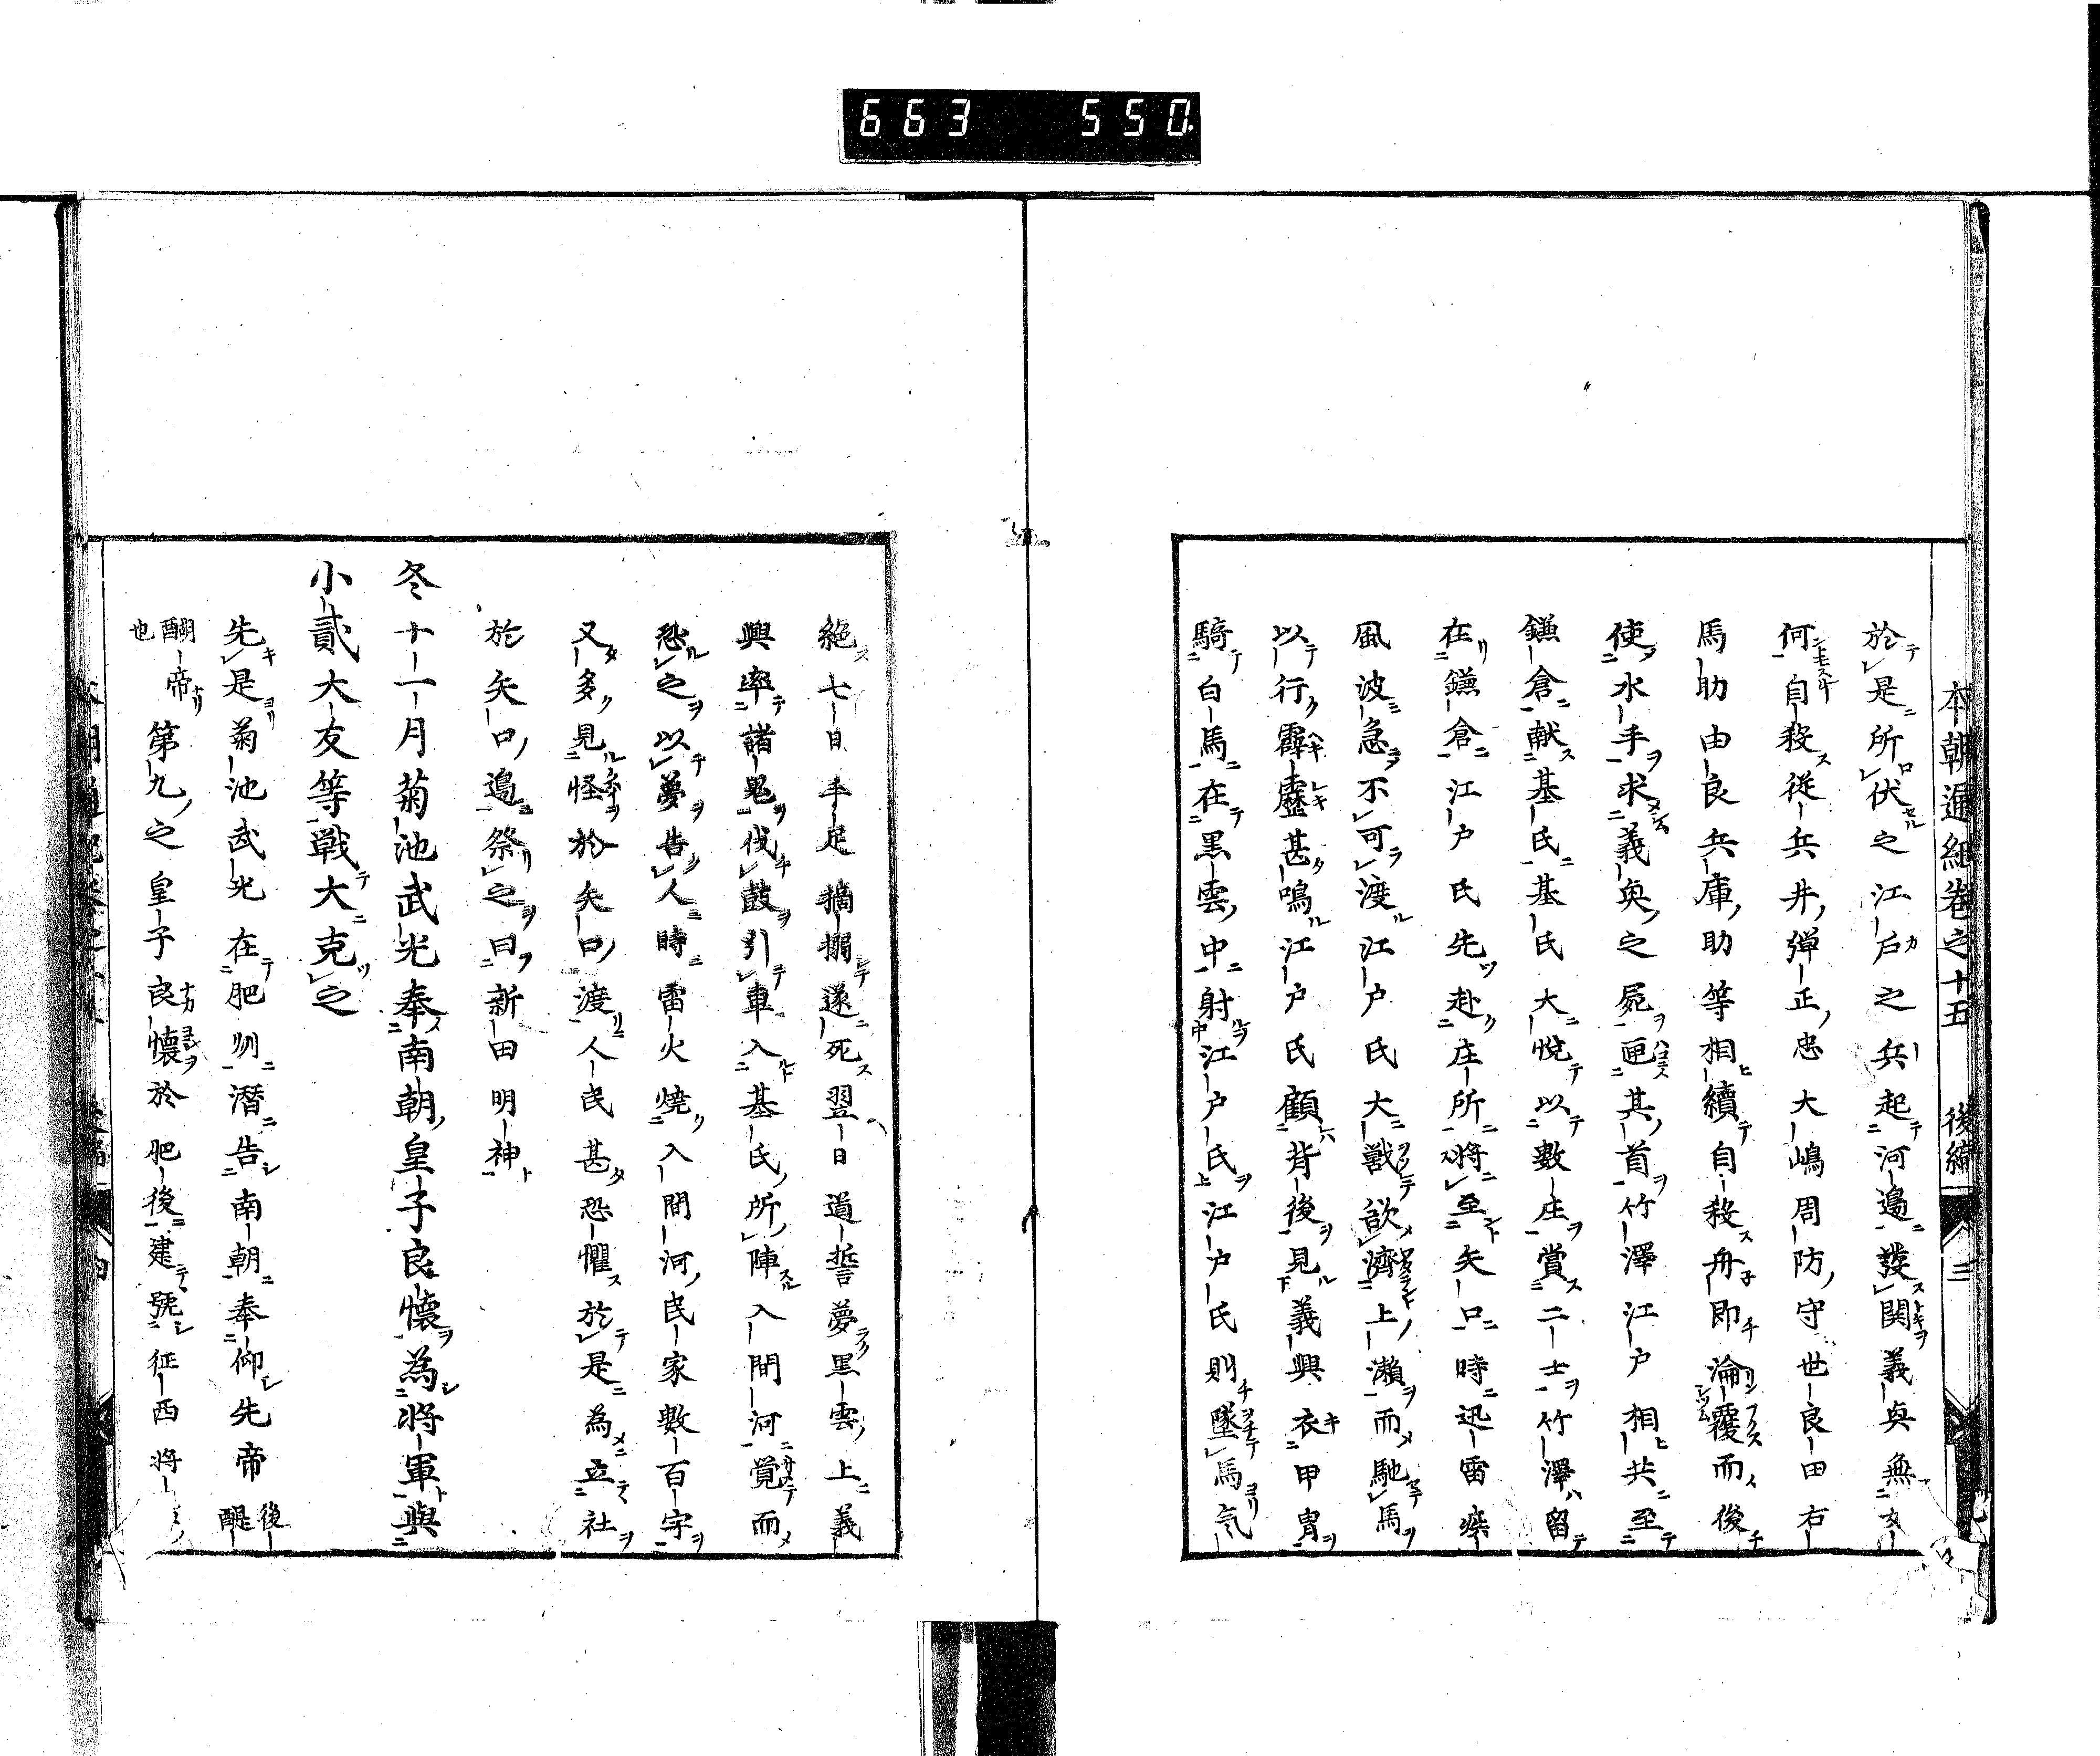 663 550.
本朝通紀卷之十五 後編 三
於是所伏之江戸之兵起河邉發鬨義興無
何自殺從兵井彈正忠大嶋周防守世良田右
馬助由良兵庫助等相續自殺舟即淪覆而後
使水手求義興之屍匣其首竹澤江戸相共至
鎌倉献基氏基氏大悦以數庄賞二士竹澤留
在鎌倉江戸氏先赴庄所將至矢口時迅雷
風波急不可渡江戸氏大獣欲濟上瀬而馳馬
以行霹靂甚鳴江戸氏顧背後見義興衣甲冑
騎白馬在黒雲中射江戸氏江戸氏則墜馬氣
絶七日手足搐搦遂死翌日道誓夢黒雲上義
興率諸鬼伐鼓引車入基氏所陣入間河覺而
恐之以夢告人時雷火燒入間河民家數百宇
又多見怪於矢口渡人民甚恐懼於是為立社
於矢口邉祭之曰新田明神
冬十一月菊池武光奉南朝皇子良懐為將軍與
小貳大友等戰大克之
先是菊池武光在肥州潛告南朝奉仰先帝後醍
醐帝也第九之皇子良懐於肥後建號征西將